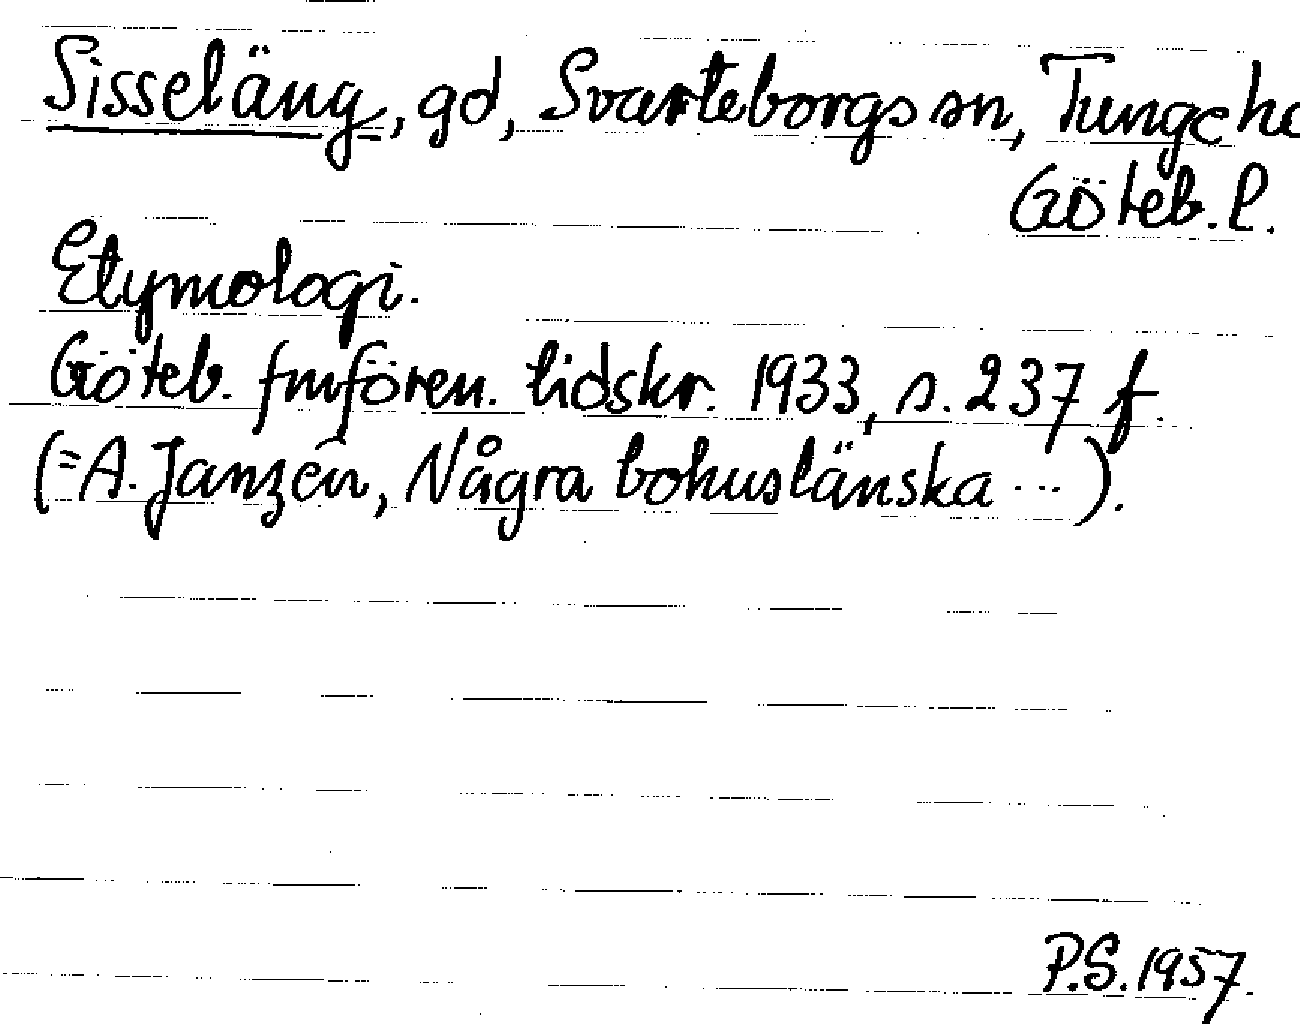 Sisseläng, gd, Svarteborgs sn, Tunge hd
Göteb. l.
Etymologi.
Göteb. fmfören. tidskr. 1933, s. 237 f.
(= A. Janzén, Några bohuslänska ...).
P.S. 1957.